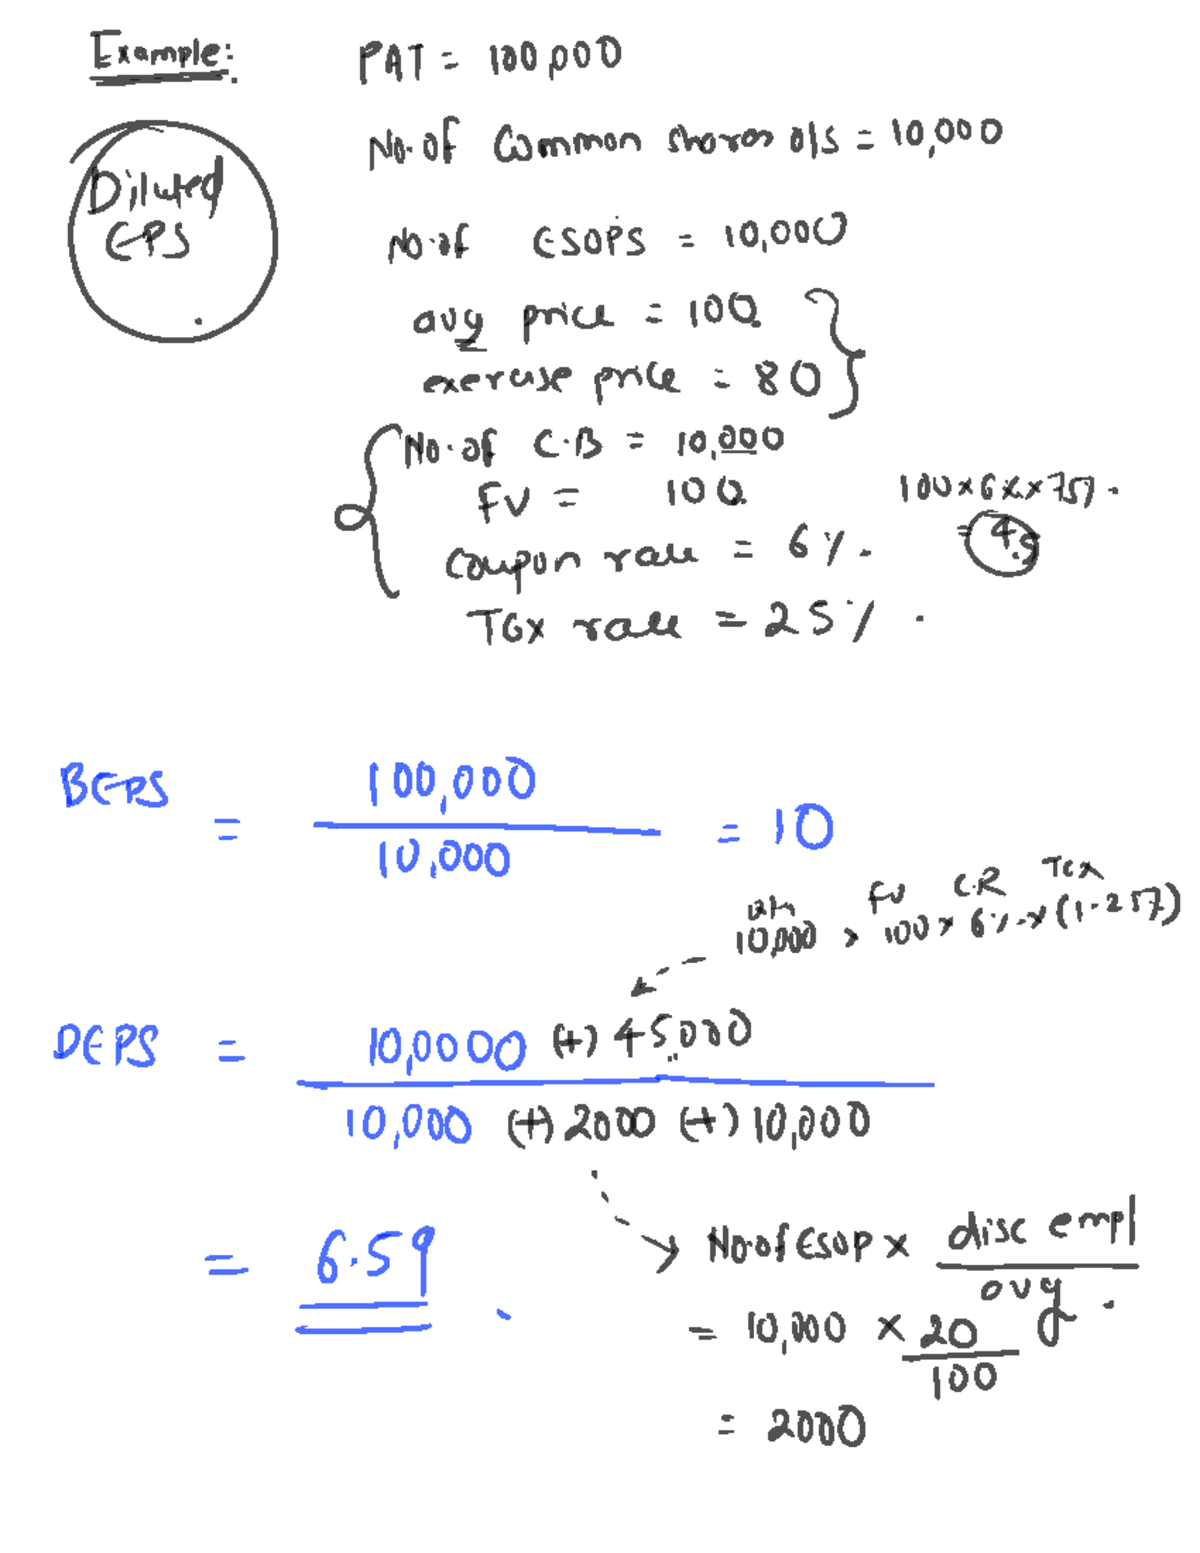 Example:
PAT = 100,000
No. of Common shares o/s = 10,000
Diluted
EPS
No. of ESOPS = 10,000
avg price = 100
exercise price = 80
No. of C.B = 10,000
FV = 100
100 × 6% × 75%
= 4.5
coupon rate = 6%
Tax rate = 25%
BEPS = 100,000 / 10,000 = 10
FV C.R Tax
10,000 × 100 × 6% × (1-25%)
DEPS = 10,0000 (+) 45,000
10,000 (+) 2000 (+) 10,000
= 6.59
No. of ESOP × disc empl / avg
= 10,000 × 20 / 100
= 2000